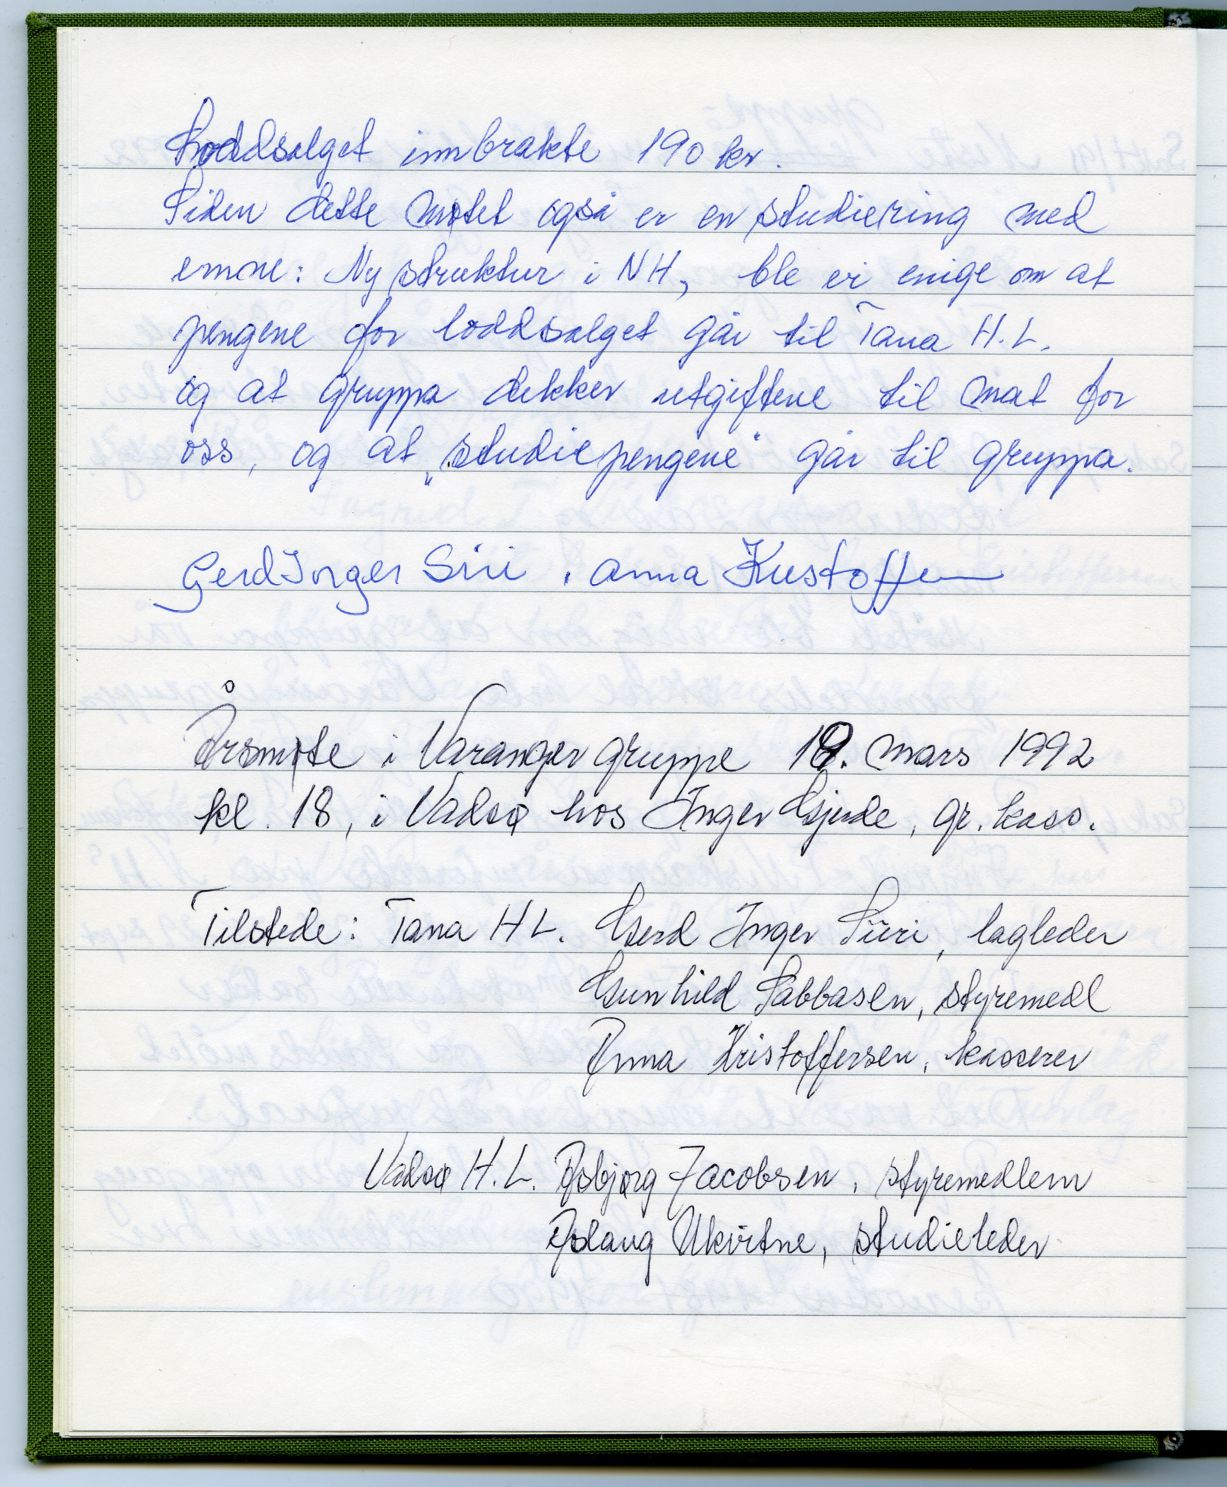 Loddsalget innbrakte 190 kr.
Siden dette møtet også er en studiering med
emne: Ny struktur i NH, ble vi enige om at
pengene for loddsalget går til Tana H.L.
og at gruppa dekker utgiftene til mat for
oss, og at „studiepengene" går til gruppa.
Gerd Inger Siri . Anna Kristoffersen
Årsmøte i Varanger gruppe 19. mars 1992
kl. 18, i Vadsø hos Inger Gjerde, gr. kass.
Tilstede: Tana H L. Gerd Inger Siiri, lagleder
Gunhild Sabbasen, styremedl
Anna Kristoffersen, kasserer
Vadsø H. L. Asbjørg Jacobsen, styremedlem
Aslaug Ukvitne, studieleder